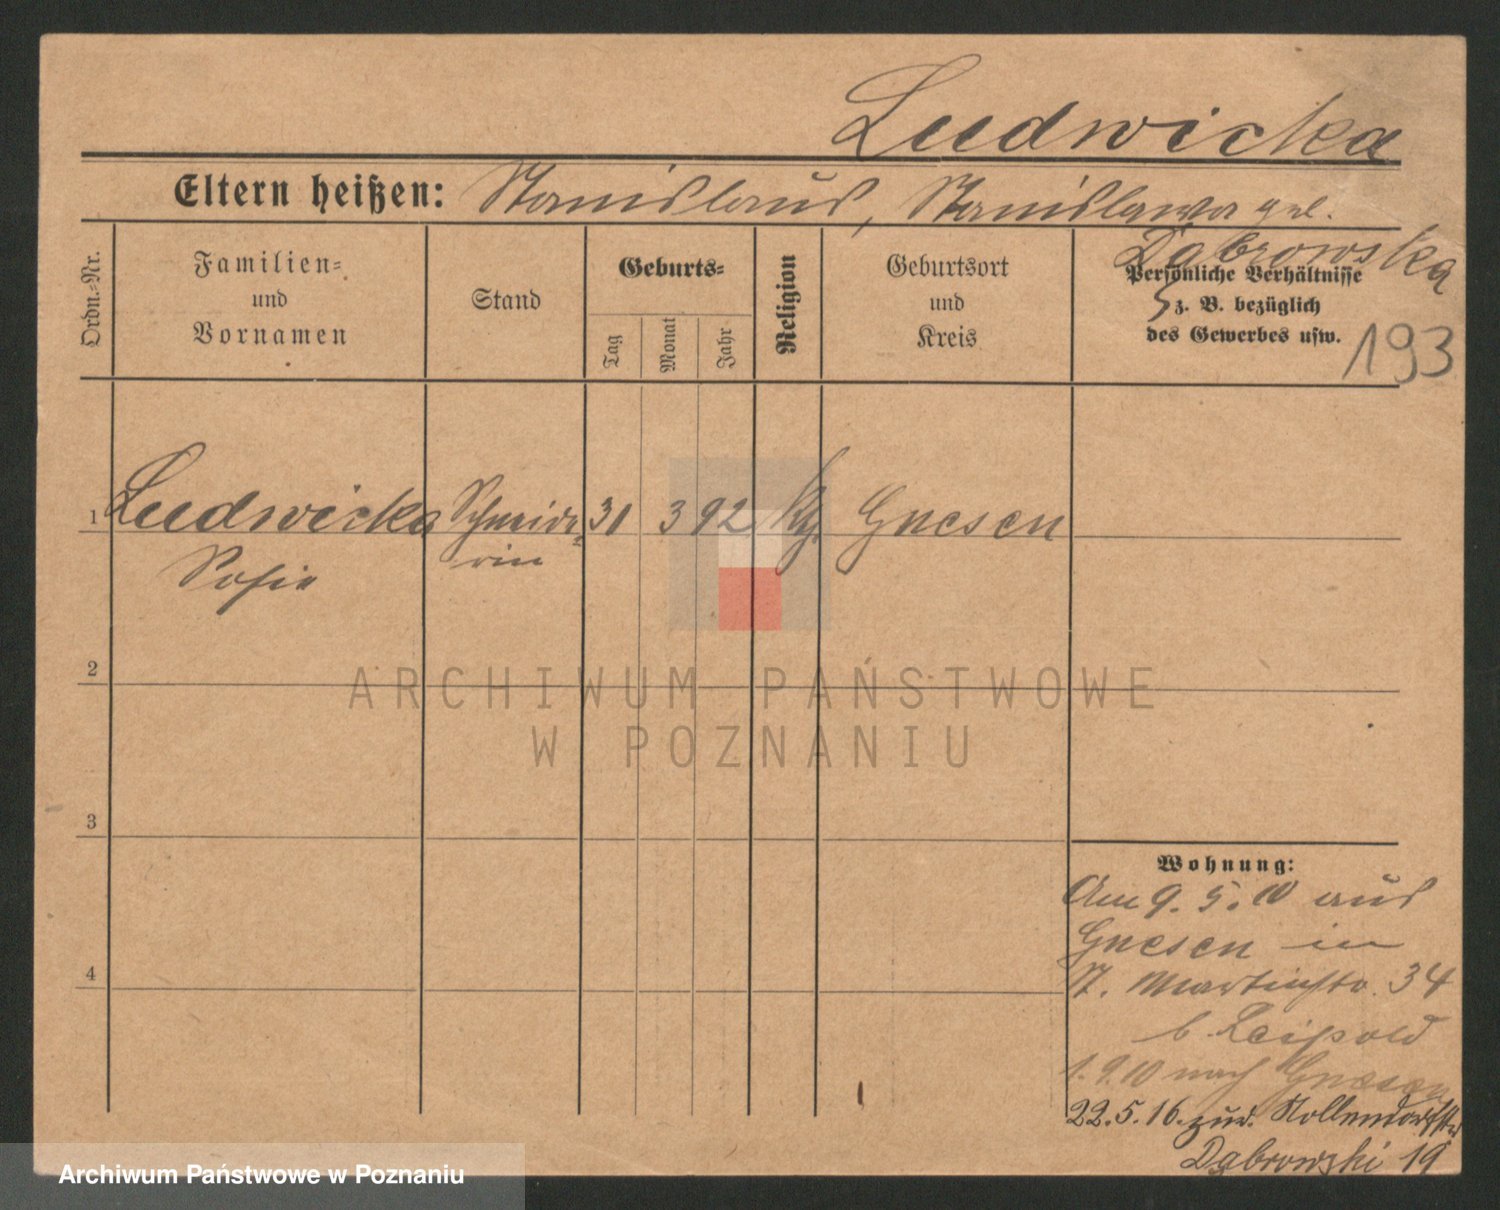 Ludwicka
Eltern heißen: Stanislaus, Stanislawa geb.
Dąbrowska
Ordn.-Nr.
Familien-
und
Vornamen
Stand
Geburts-
Tag
Monat
Jahr
Religion
Geburtsort
und
Kreis
Persönliche Verhältnisse
z. B. bezüglich
des Gewerbes usw.
193
1 Ludwicka Schneide- 31 3 92 kth. Gnesen
Sofie rin
2
ARCHIWUM PAŃSTWOWE
W POZNANIU
3
Wohnung:
Am 9. 5. 10 aus
Gnesen in
4
St. Martinstr. 34
b. Leipold
1. 9. 10 nach Gnesen
22. 5. 16. zur. Nollendorfstr
Dąbrowski 19
Archiwum Państwowe w Poznaniu